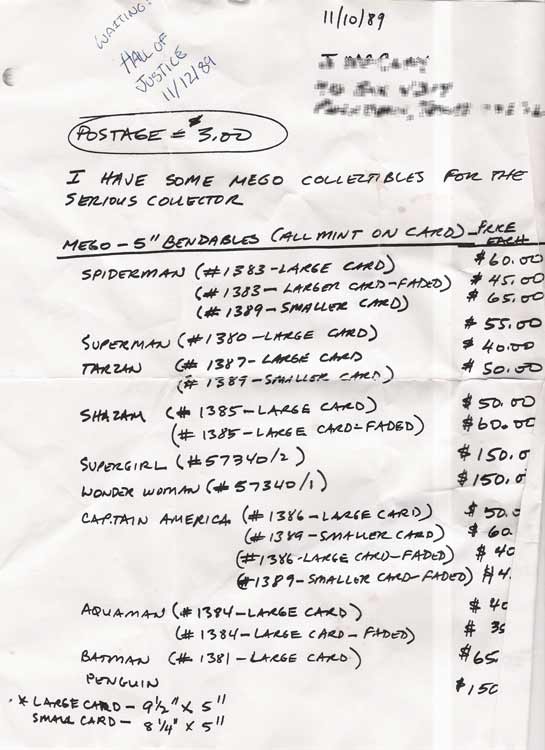 WAITING!
HALL OF
JUSTICE
11/12/89
11/10/89
POSTAGE = $3.00
I HAVE SOME MEGO COLLECTIBLES FOR THE
SERIOUS COLLECTOR
MEGO - 5" BENDABLES (ALL MINT ON CARD) - PRICE EACH
SPIDERMAN (#1383 - LARGE CARD) $60.00
(#1383 - LARGER CARD - FADED) $45.00
(#1389 - SMALLER CARD) $65.00
SUPERMAN (#1380 - LARGE CARD) $55.00
TARZAN (#1387 - LARGE CARD $40.00
(#1389 - SMALLER CARD) $50.00
SHAZAM (#1385 - LARGE CARD) $50.00
(#1385 - LARGE CARD - FADED) $60.00
SUPERGIRL (#57340/2) $150.0
WONDER WOMAN (#57340/1) $150.
CAPTAIN AMERICA (#1386 - LARGE CARD) $50.0
(#1389 - SMALLER CARD) $60.
(#1386 - LARGE CARD - FADED) $40
(#1389 - SMALLER CARD - FADED) $4.
AQUAMAN (#1384 - LARGE CARD) $40
(#1384 - LARGE CARD - FADED) $35
BATMAN (#1381 - LARGE CARD) $65.
PENGUIN $150
* LARGE CARD - 9 1/2" X 5"
SMALL CARD - 8 1/4" X 5"